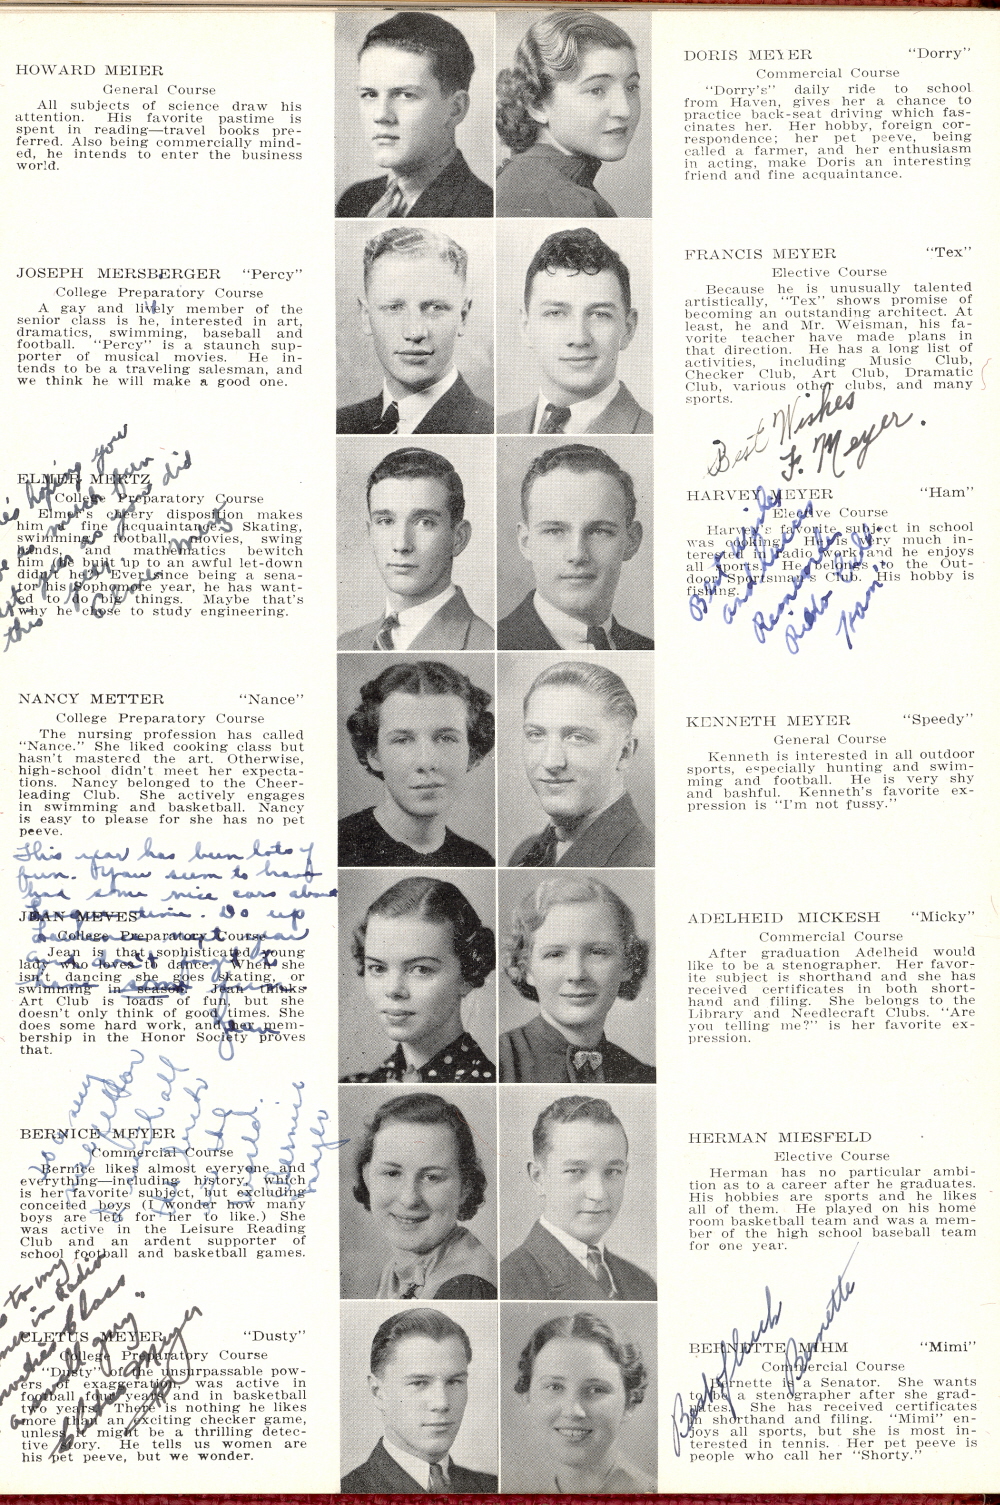 HOWARD MEIER
General Course
All subjects of science draw his
attention. His favorite pastime is
spent in reading—travel books pre-
ferred. Also being commercially mind-
ed, he intends to enter the business
world.
JOSEPH MERSBERGER "Percy"
College Preparatory Course
A gay and lively member of the
senior class is he, interested in art,
dramatics, swimming, baseball and
football. "Percy" is a staunch sup-
porter of musical movies. He in-
tends to be a traveling salesman, and
we think he will make a good one.
ELMER MERTZ
College Preparatory Course
Elmer's cheery disposition makes
him a fine acquaintance. Skating,
swimming, football, movies, swing
bands, and mathematics bewitch
him. He built up to an awful let-down
didn't he? Ever since being a sena-
tor his Sophomore year, he has want-
ed to do big things. Maybe that's
why he chose to study engineering.
hoping you
much fun
year as you did
this year.
Elmer Mertz
NANCY METTER "Nance"
College Preparatory Course
The nursing profession has called
"Nance." She liked cooking class but
hasn't mastered the art. Otherwise,
high-school didn't meet her expecta-
tions. Nancy belonged to the Cheer-
leading Club. She actively engages
in swimming and basketball. Nancy
is easy to please for she has no pet
peeve.
This year has been lots of
fun. You seem to have
had some nice cars about
time. Do up
year
and don't forget to
have some fun
Jean
JEAN MEVES
College Preparatory Course
Jean is that sophisticated young
lady who loves to dance. When she
isn't dancing she goes skating, or
swimming in season. Jean thinks
Art Club is loads of fun, but she
doesn't only think of good times. She
does some hard work, and her mem-
bership in the Honor Society proves
that.
BERNICE MEYER
Commercial Course
Bernice likes almost everyone and
everything—including history, which
is her favorite subject, but excluding
conceited boys (I wonder how many
boys are left for her to like.) She
was active in the Leisure Reading
Club and an ardent supporter of
school football and basketball games.
all
the luck
in the
world.
Bernice
Meyer
CLETUS MEYER "Dusty"
College Preparatory Course
"Dusty" of the unsurpassable pow-
ers of exaggeration, was active in
football four years and in basketball
two years. There is nothing he likes
more than an exciting checker game,
unless it might be a thrilling detec-
tive story. He tells us women are
his pet peeve, but we wonder.
to my
in Radio
class
small guy"
Cletus Meyer
DORIS MEYER "Dorry"
Commercial Course
"Dorry's" daily ride to school
from Haven, gives her a chance to
practice back-seat driving which fas-
cinates her. Her hobby, foreign cor-
respondence; her pet peeve, being
called a farmer, and her enthusiasm
in acting, make Doris an interesting
friend and fine acquaintance.
FRANCIS MEYER "Tex"
Elective Course
Because he is unusually talented
artistically, "Tex" shows promise of
becoming an outstanding architect. At
least, he and Mr. Weisman, his fa-
vorite teacher have made plans in
that direction. He has a long list of
activities, including Music Club,
Checker Club, Art Club, Dramatic
Club, various other clubs, and many
sports.
Best Wishes
F. Meyer.
HARVEY MEYER "Ham"
Elective Course
Harvey's favorite subject in school
was cooking. He is very much in-
terested in radio work and he enjoys
all sports. He belongs to the Out-
door Sportsman's Club. His hobby is
fishing.
Best Wishes
and
Remember
Radio Club
"Ham"
KENNETH MEYER "Speedy"
General Course
Kenneth is interested in all outdoor
sports, especially hunting and swim-
ming and football. He is very shy
and bashful. Kenneth's favorite ex-
pression is "I'm not fussy."
ADELHEID MICKESH "Micky"
Commercial Course
After graduation Adelheid would
like to be a stenographer. Her favor-
ite subject is shorthand and she has
received certificates in both short-
hand and filing. She belongs to the
Library and Needlecraft Clubs. "Are
you telling me?" is her favorite ex-
pression.
HERMAN MIESFELD
Elective Course
Herman has no particular ambi-
tion as to a career after he graduates.
His hobbies are sports and he likes
all of them. He played on his home
room basketball team and was a mem-
ber of the high school baseball team
for one year.
BERNETTE MIHM "Mimi"
Commercial Course
Bernette is a Senator. She wants
to be a stenographer after she grad-
uates. She has received certificates
in shorthand and filing. "Mimi" en-
joys all sports, but she is most in-
terested in tennis. Her pet peeve is
people who call her "Shorty."
Best of luck
Bernette